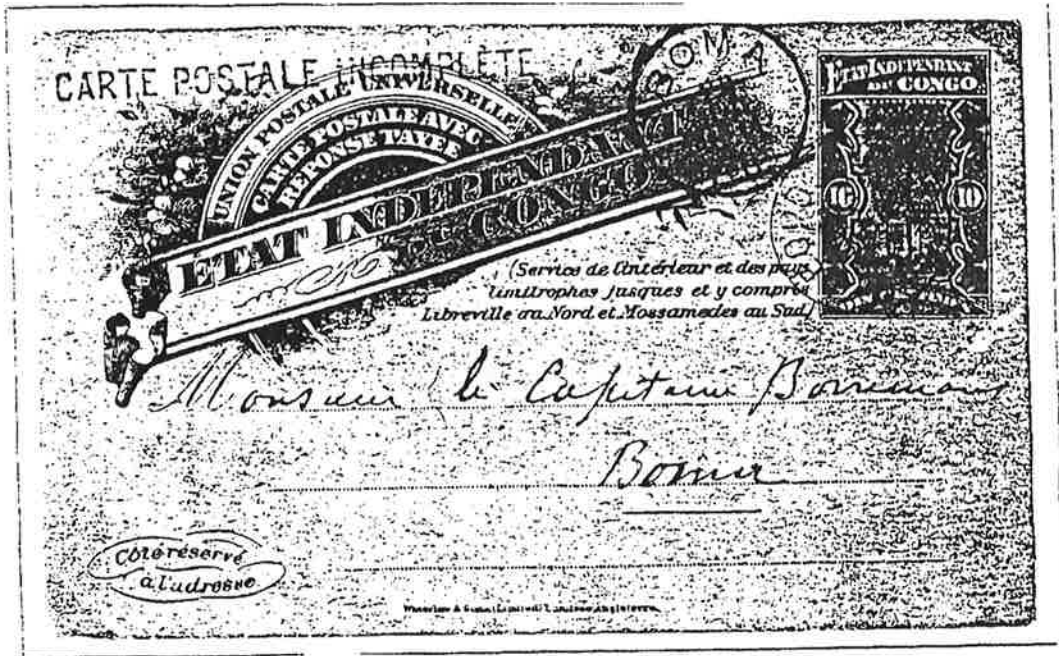 CARTE POSTALE INCOMPLÈTE
BOMA
ETAT INDEPENDANT
DU CONGO
UNION POSTALE UNIVERSELLE
CARTE POSTALE AVEC
REPONSE PAYEE
ETAT INDEPENDANT
CONGO
10 10
(Service de l'intérieur et des pays
limitrophes jusques et y compris
Libreville au Nord et Mossamedes au Sud)
Monsieur le Capitaine
Boma
Côté réservé
à l'adresse
Waterlow & Sons Limited, Londres, Angleterre